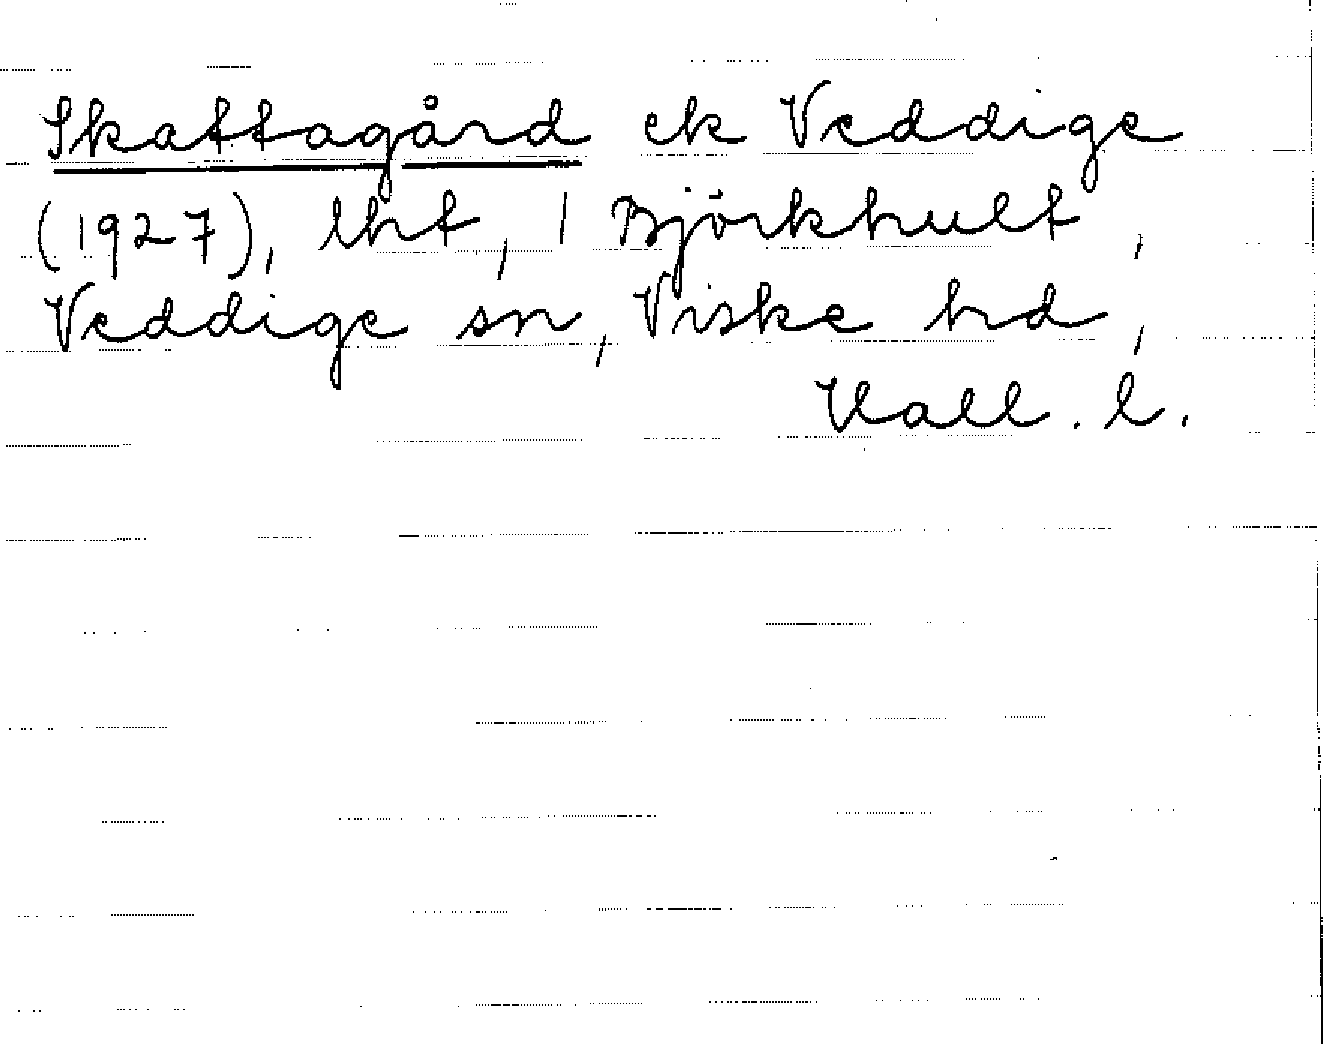 Skattagård ek Veddige
(1927), lht, 1 Björkhult,
Veddige sn, Viske hd,
Hall. l.